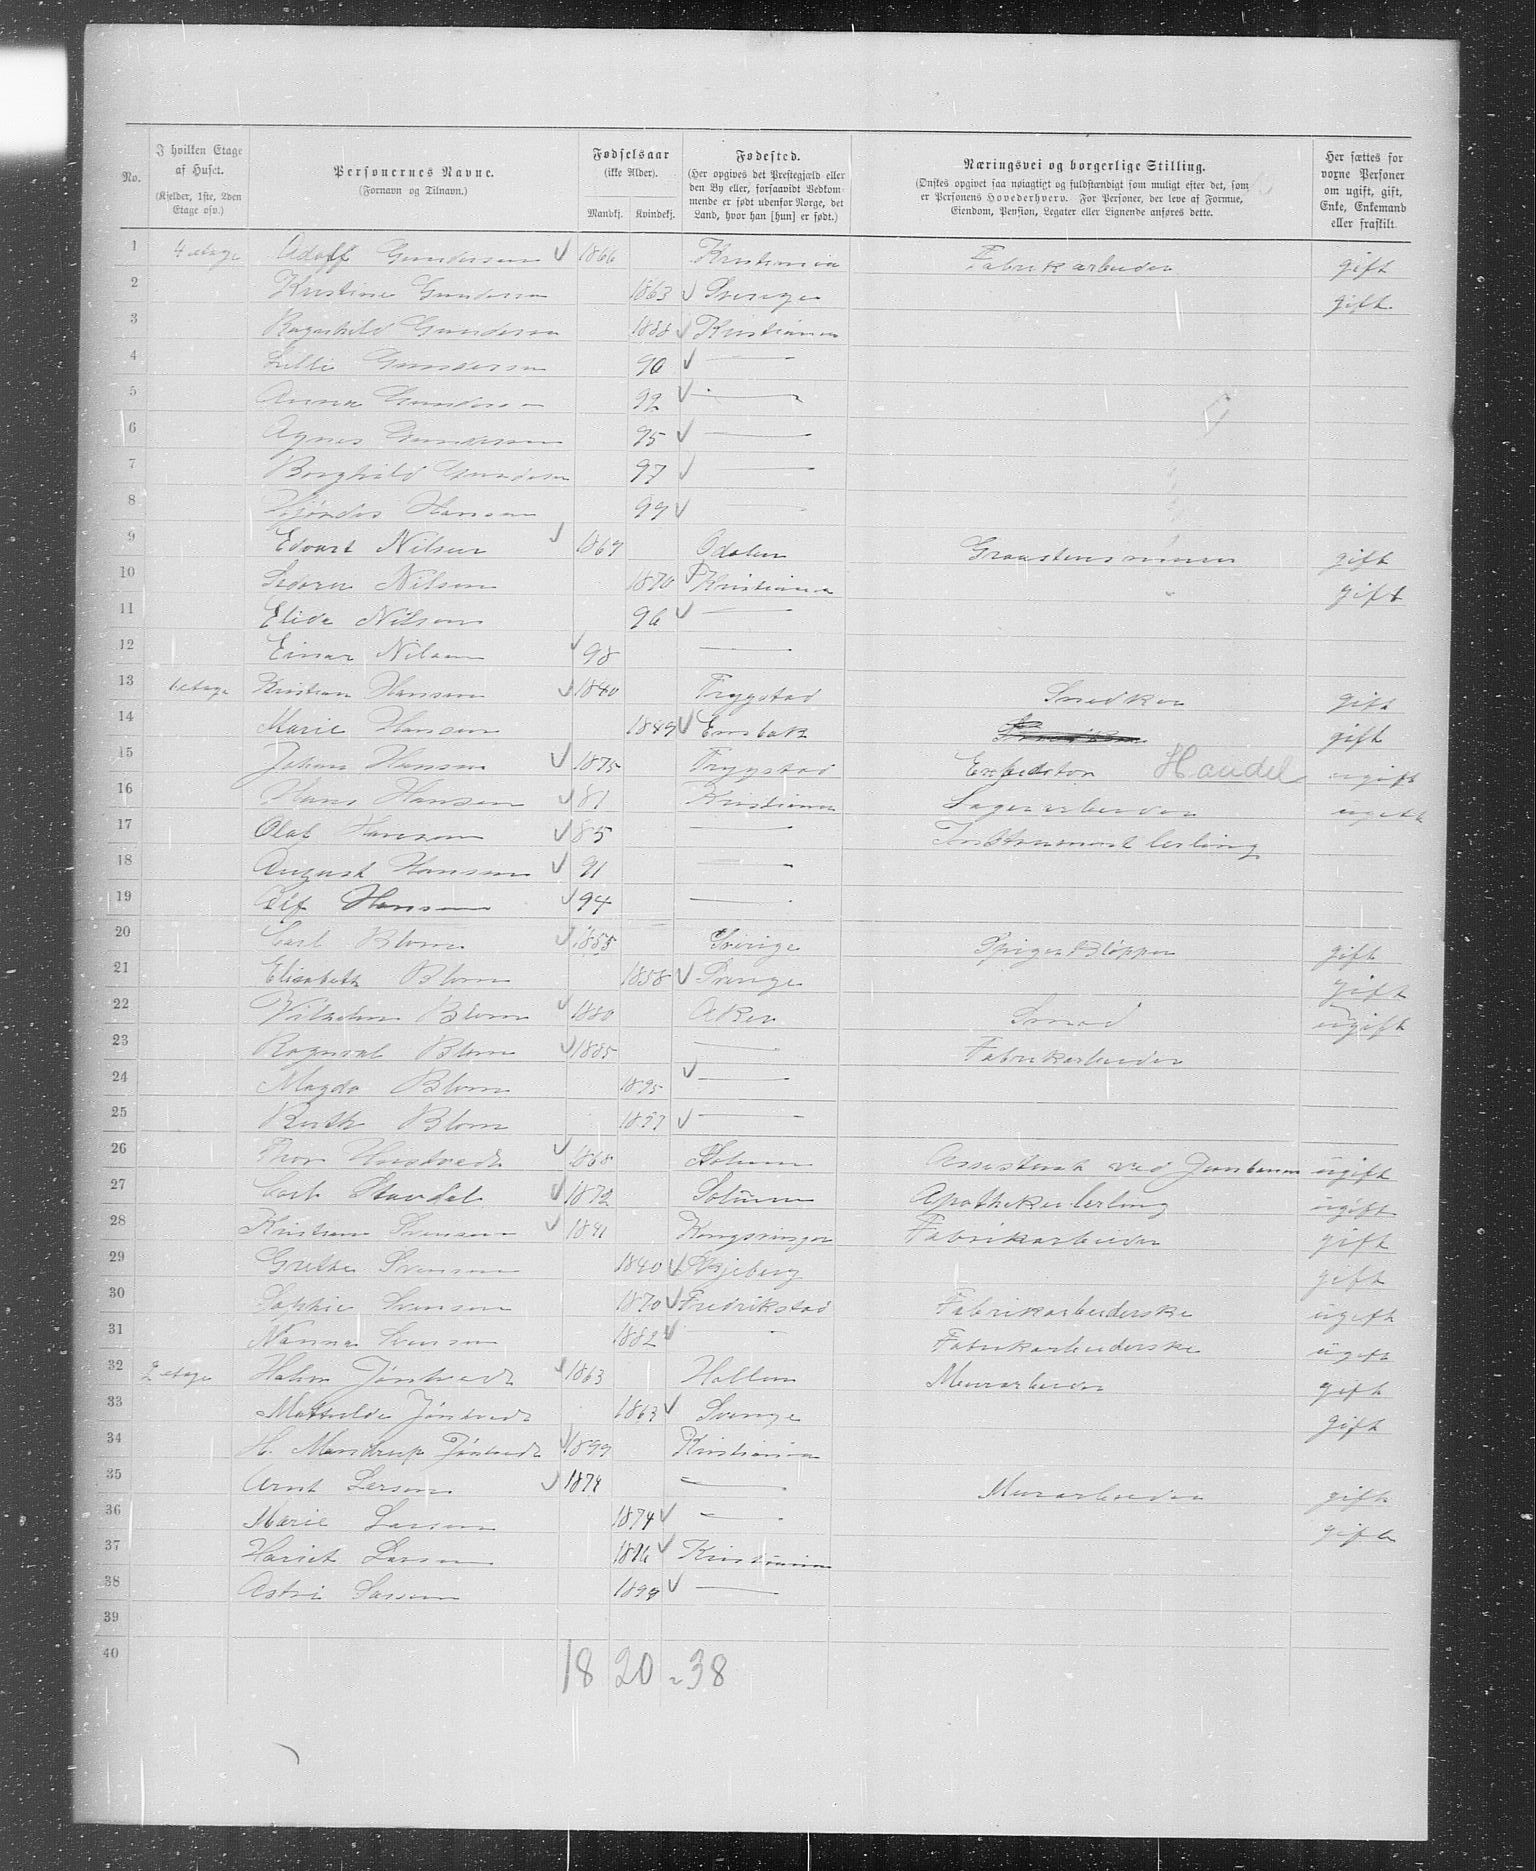 No.
I hvilken Etage af Huset.
(Kjelder, 1ste, 2den Etage osv.)
Personernes Navne.
(Fornavn og Tilnavn.)
Fødselsaar
(ikke Alder).
Mandkj. Kvindekj.
Fødested.
(Her opgives det Prestegjæld eller
den By eller, forsaavidt Vedkom-
mende er født udenfor Norge, det
Land, hvor han [hun] er født.)
Næringsvei og borgerlige Stilling.
(Ønskes opgivet saa nøiagtigt og fuldstændigt som muligt efter det, som
er Personens Hovederhverv. For Personer, der leve af Formue,
Eiendom, Pension, Legater eller Lignende anføres dette.
Her sættes for
voxne Personer
om ugift, gift,
Enke, Enkemand
eller fraskilt.
1 4 etage Adolf Gundersen 1866 Kristiania Fabrikarbeider gift
2 Kristine Gundersen 1863 Sverige gift
3 Ragnhild Gundersen 1888 Kristiania
4 Lilli Gundersen 90 —
5 Anna Gundersen 92 —
6 Agnes Gundersen 95 —
7 Borghild Gundersen 97 —
8 Hansen 99
9 Edvart Nilsen 1867 Odalen gift
10 Nilsen 1870 Kristiania gift
11 Elida Nilsen 96 —
12 Einar Nilsen 98 —
13 1 etage Kristian Hansen 1840 Trygstad Snedker gift
14 Marie Hansen 1849 Enebak gift
15 Johan Hansen 1875 Trygstad Expeditør Handel ugift
16 Hans Hansen 81 Kristiania Lagerarbeider ugift
17 Olaf Hansen 85 — Instrumentlerling
18 August Hansen 91 —
19 Alf Hansen 94 —
20 Carl Blom 1855 Sverige gift
21 Elisabeth Blom 1858 Sverige gift
22 Vilhelm Blom 1880 Aker Smed ugift
23 Ragnval Blom 1885 — Fabrikarbeider
24 Magda Blom 1895 —
25 Ruth Blom 1897 —
26 Thor 1868 Assistent ved Jernbanen ugift
27 Carl 1872 Solum Apothekerlerling ugift
28 Kristian Svensen 1841 Kongsvinger Fabrikarbeider gift
29 Grethe Svensen 1840 Skjeberg gift
30 Sophie Svensen 1870 Fredrikstad Fabrikarbeiderske ugift
31 Nanna Svensen 1882 Fabrikarbeiderske ugift
32 2 etage 1863 Murarbeider gift
33 Mathilde 1863 Sverige gift
34 H. 1899 Kristiania
35 Arnt Larsen 1874 — Murarbeider gift
36 Marie Larsen 1874 — gift
37 Hariet Larsen 1896 Kristiania
38 Astri Larsen 1899 —
39
40
18 20 = 38